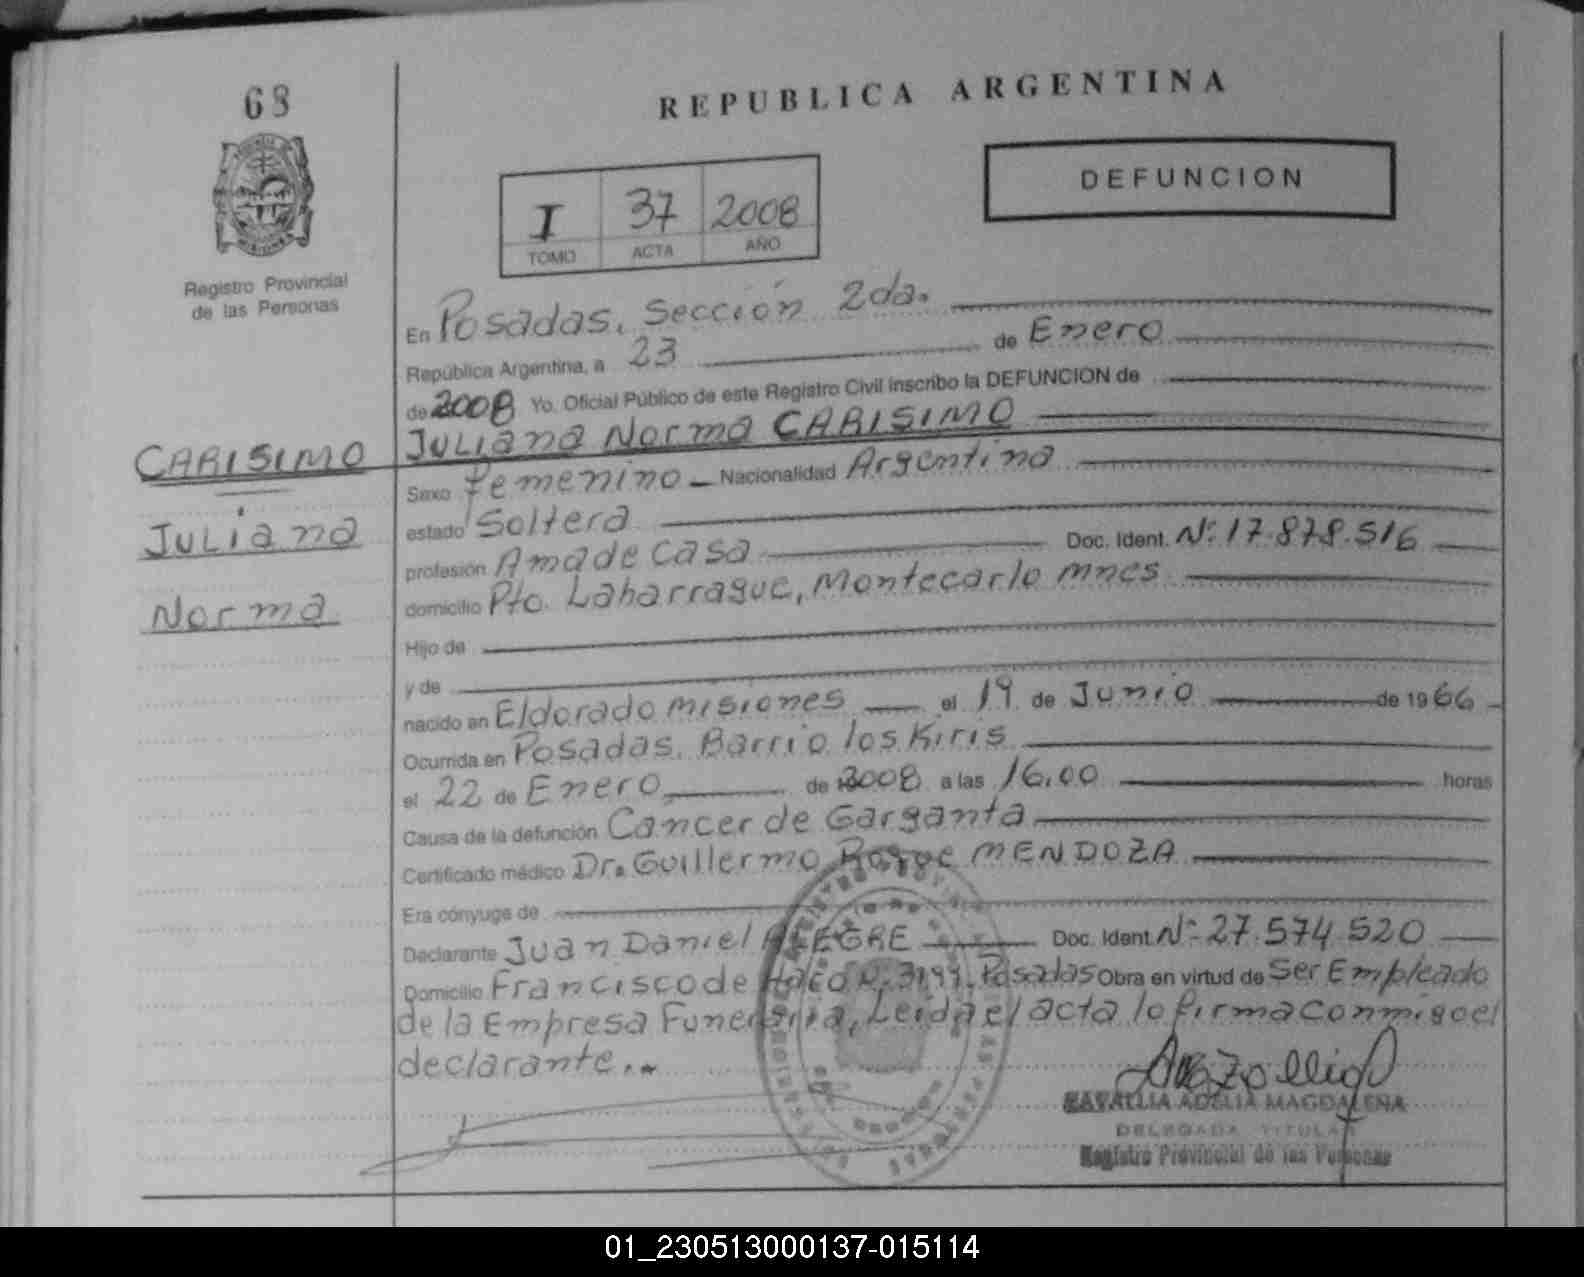 68
REPUBLICA ARGENTINA
DEFUNCION
I 37 2008
TOMO ACTA AÑO
Registro Provincial
de las Personas
En Posadas, Sección 2da.
República Argentina, a 23 de Enero
de 2008 Yo, Oficial Público de este Registro Civil inscribo la DEFUNCION de
Juliana Norma CARISIMO
CARISIMO
Juliana
Norma
Sexo femenino Nacionalidad Argentina
estado Soltera
profesión Ama de casa Doc. Ident. Nº 17.878.516
domicilio Pto. Laharrague, Montecarlo mnes
Hijo de
y de
nacido en Eldorado misiones el 19 de Junio de 1966
Ocurrida en Posadas. Barrio los Kiris
el 22 de Enero de 2008 a las 16,00 horas
Causa de la defunción Cancer de Garganta
Certificado médico Dr. Guillermo Roque MENDOZA
Era cónyuge de
Declarante Juan Daniel ALEGRE Doc. Ident. Nº 27.574.520
Domicilio Francisco de Haro Posadas Obra en virtud de Ser Empleado
de la Empresa Funeraria, Leida el acta lo firma conmigo el
declarante.
ADELIA MAGDALENA
DELEGADA TITULAR
Registro Provincial de las Personas
01_230513000137-015114